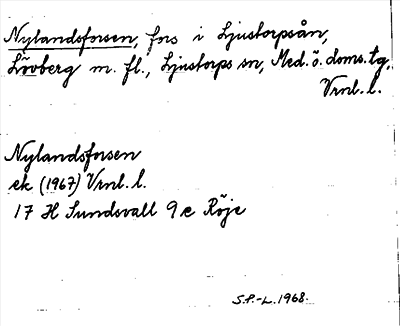 Nylandsforsen, fors i Ljustorpsån,
Lövberg m. fl., Ljustorps sn, Med. ö. doms. tg,
Vrnl. l.
Nylandsforsen
ek (1967) Vrnl. l.
17 H Sundsvall 9 e Röje
S.P.-L. 1968.